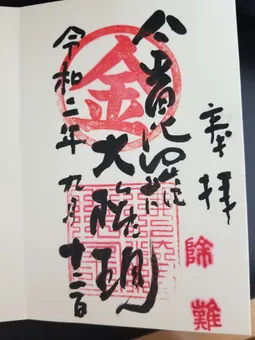 奉拝
除難
金
金毘羅
大権現
令和二年九月十二日